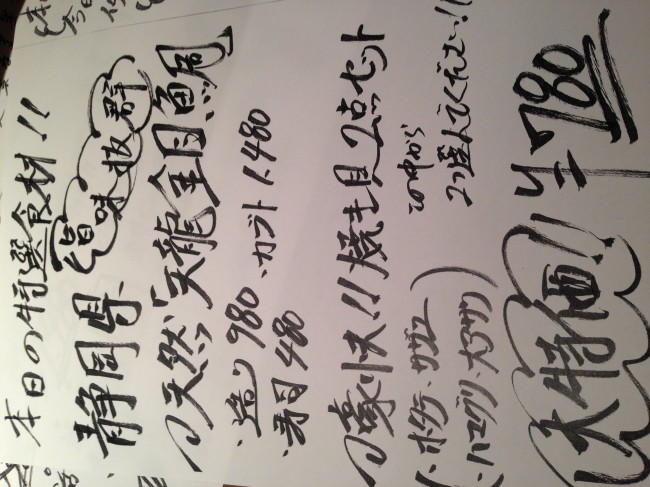 本日の特選食材!!
静岡県、旨味抜群
天然「天龍金目鯛」
・造り 980 ・カブト 1,480
・寿司 480
豪快!!焼き貝2点セット
(・ホタテ、サザエ
・ハマグリ、大アサリ)
この中から
2つ選んでください!!
大特価!! ¥780